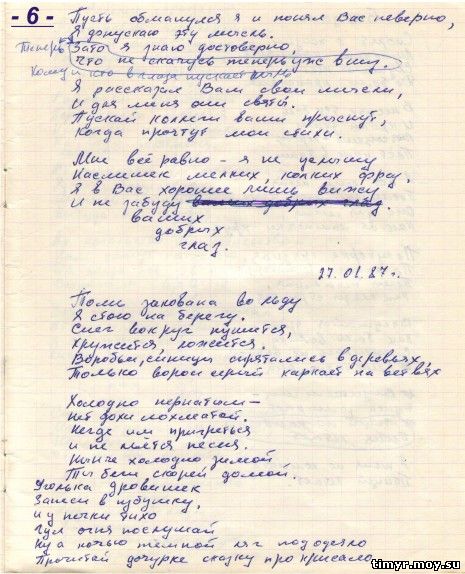 - 6 -
Пусть обманулся я и понял Вас неверно,
Я допускаю эту мысль.
Теперь Зато я знаю достоверно,
Что не скачусь теперь уже вниз.
Кому и что в глаза пускает пыль
Я рассказал Вам свои мысли,
И для меня они святы.
Пускай коллеги ваши прыснут,
Когда прочтут мои стихи.
Мне всё равно - я не услышу
Насмешек мелких, колких фраз,
Я в Вас хорошее лишь вижу
И не забуду ваших добрых глаз.
ваших
добрых
глаз.
27.01.87 г.
закована во льду
Я стою на берегу.
Снег вокруг пушится,
Кружится, ложится.
Воробьи, синицы спрятались в деревьях,
Только ворон серый каркает на ветвях
Холодно пернатым -
Нет дохи лохматой.
Негде им пригреться
и не поётся песня.
Нынче холодно зимой
Ты беги скорей домой.
Уголька дровишек
Занеси в избушку,
и у печки тихо
Гул огня послушай
Ну а ночью тёмной ляг под одеяло
Прочитай дочурке сказку про
timyr.moy.su